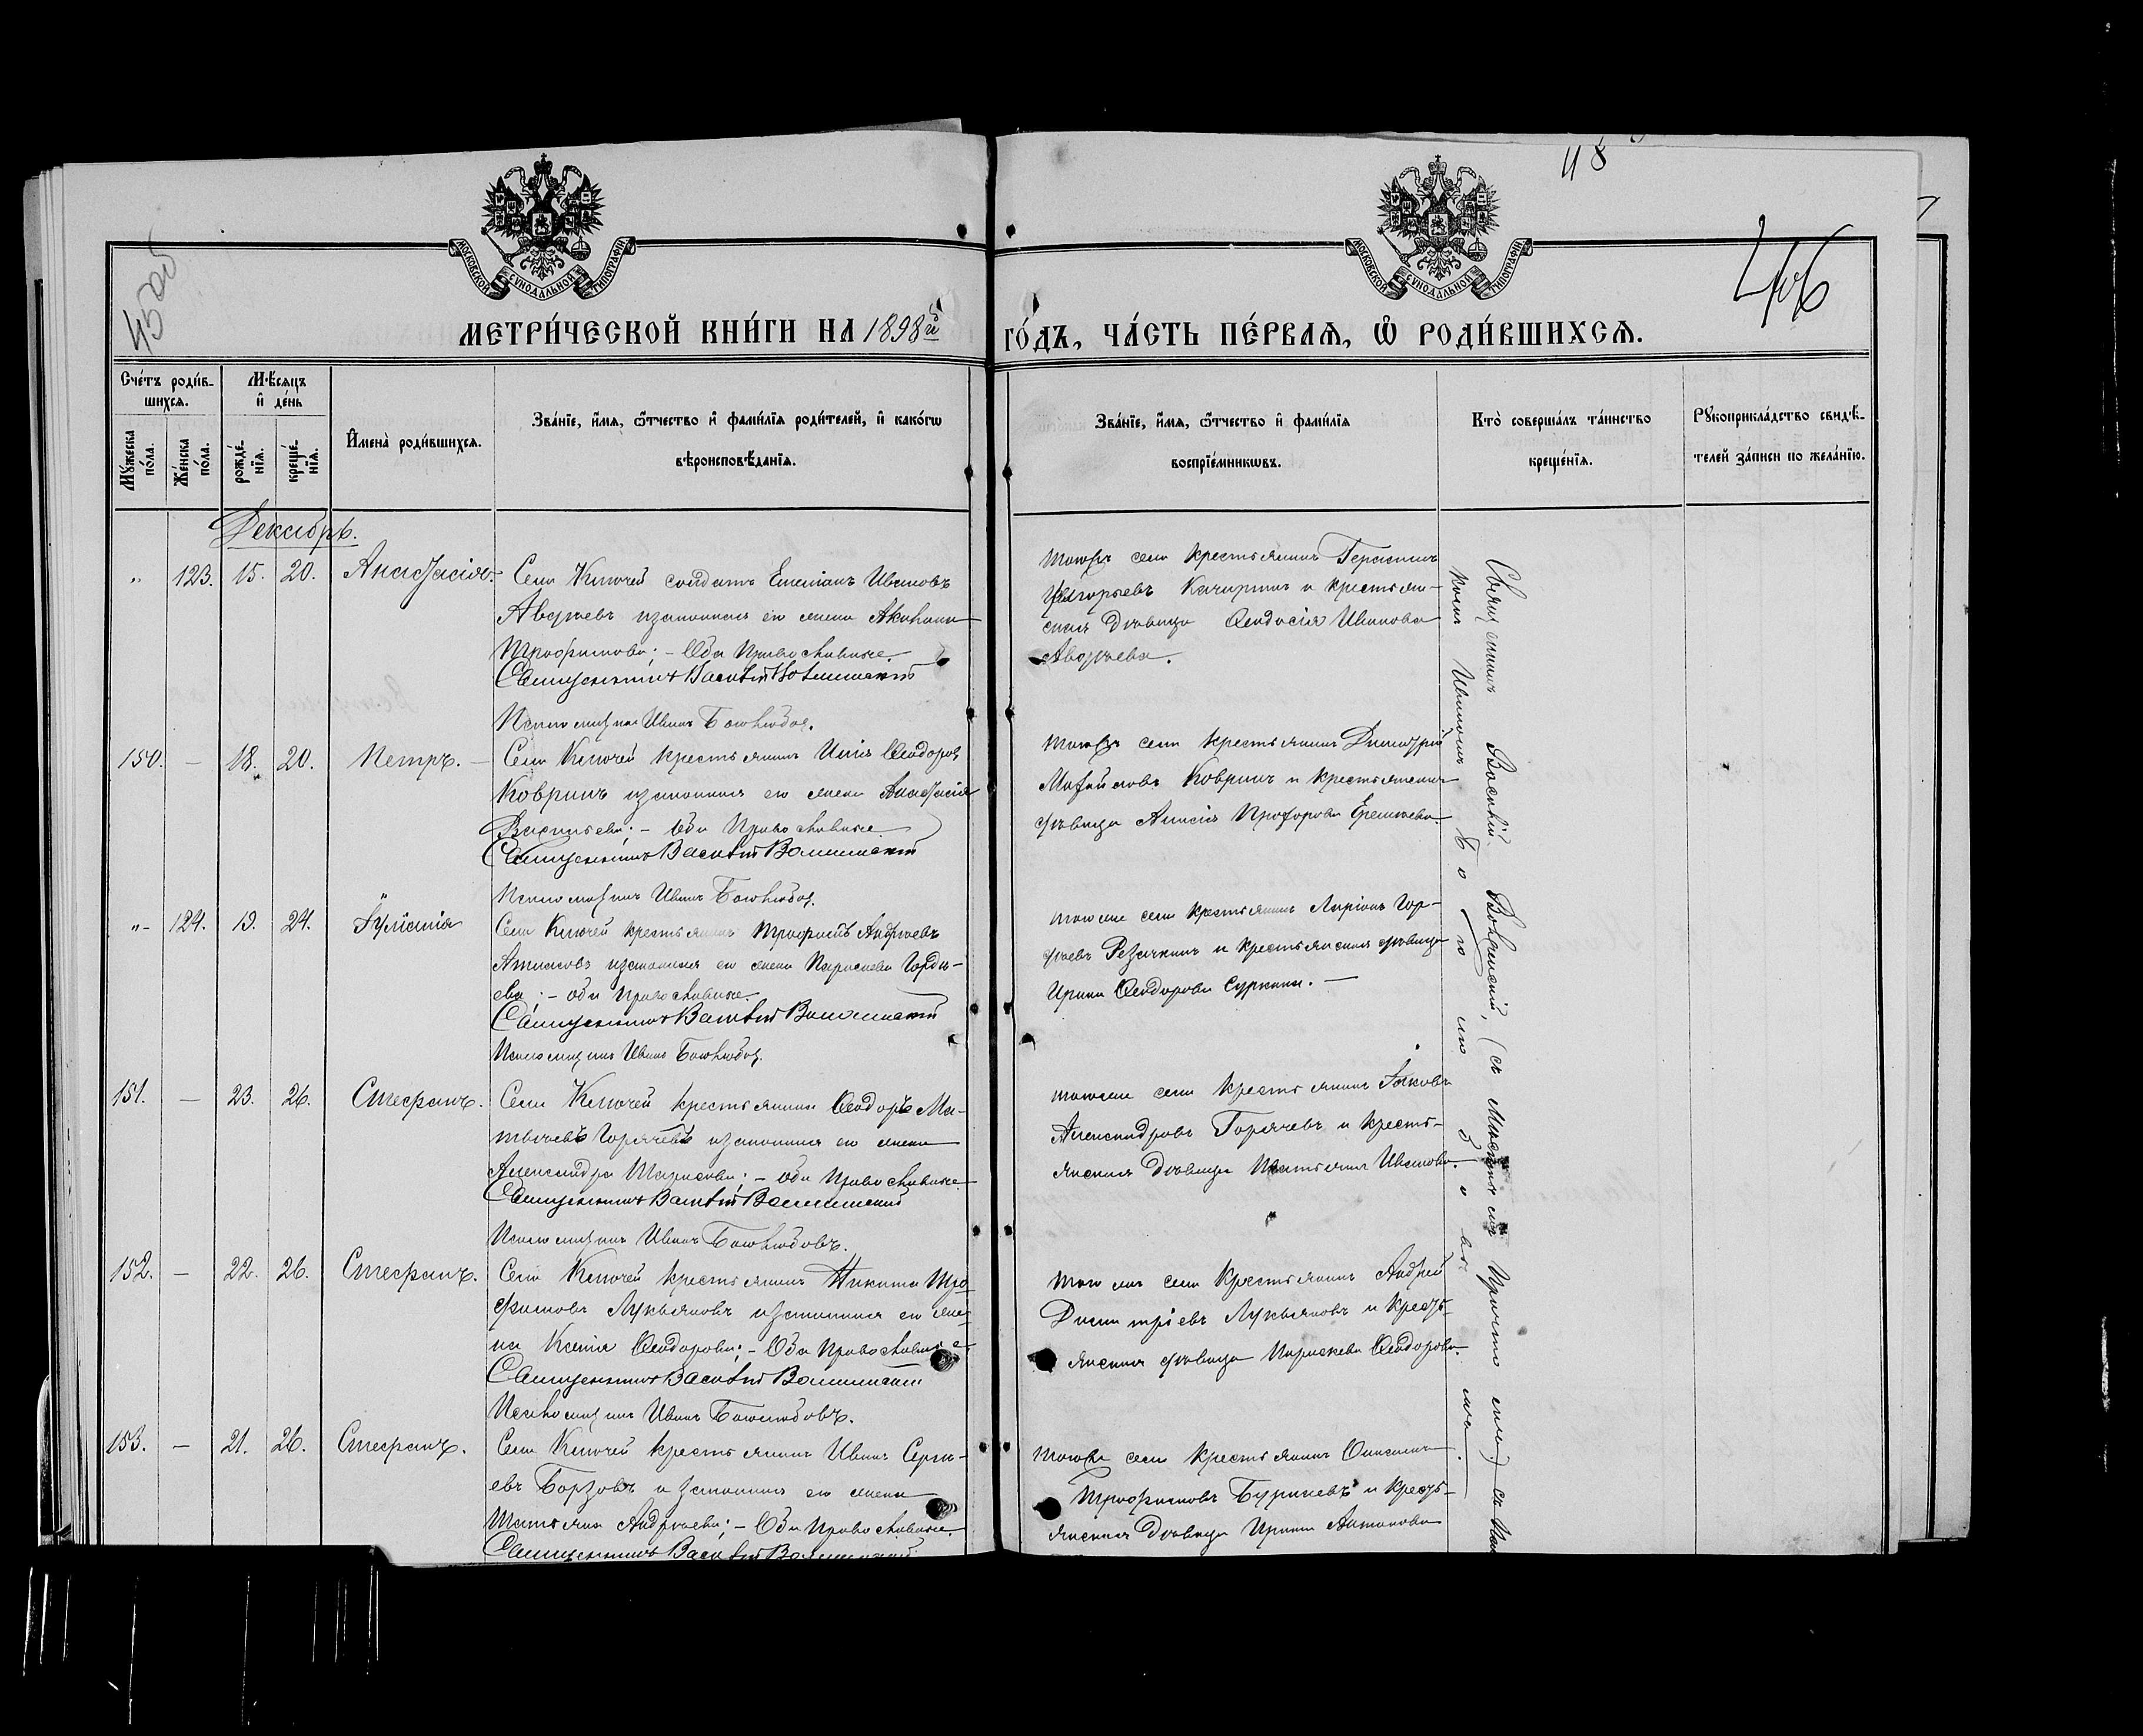 45об
118
446
МОСКОВСКОЙ СУНОДАЛЬНОЙ ТИПОГРАФІИ
МОСКОВСКОЙ СУНОДАЛЬНОЙ ТИПОГРАФІИ
МЕТРИ́ЧЕСКОЙ КНИ́ГИ НА 1898й ГО́ДЪ, ЧА́СТЬ ПЕ́РВАЯ, Ѡ РОДИ́ВШИХСЯ.
Сче́тъ роди́в-
шихся.
Мѣ́сяцъ
и҆ де́нь
Мꙋ́жеска по́ла.
Же́нска по́ла.
рожде́нїя.
креще́нїя.
И҆мена̀ роди́вшихся.
Зва́нїе, и҆́мя, ѻ҆́тчество и҆ фами́лїя роди́телей, и҆ како́гѡ
вѣроисповѣ́данїя.
Зва́нїе, и҆́мя, ѻ҆́тчество и҆ фами́лїя
воспрїе́мникѡвъ.
Кто̀ соверша́лъ та́инство
креще́нїя.
Рꙋкоприкла́дство свидѣ́-
телей за́писи по жела́нїю.
Декабрь.
" 123. 15. 20. Анастасія.
Села Ключей солдатъ Емеліанъ Ивановъ
Авдѣевъ и законная его жена Акилина
Трофимова; – Оба Православные.
Священникъ Василій Волынскій
Псаломщикъ Иванъ Боголюбов.
Тогожъ села крестьянинъ Герасимъ
Григорьевъ Качиринъ и крестьян-
ская дѣвица Ѳеодосія Иванова
Авдѣева.
150. – 18. 20. Петръ. –
Села Ключей крестьянинъ Илія Ѳеодоров
Ковринъ и законная его жена Анастасія
Васильева; – Оба Православные.
Священникъ Василій Волынскій
Псаломщикъ Иванъ Боголюбов.
Тогожъ села крестьянинъ Димитрій
Ковринъ и крестьянская
дѣвица Анисія Прохорова Еремѣева.
"- 124. 19. 24. Іуліанія
Села Ключей крестьянинъ Трофимъ Андреевъ
и законная его жена Параскева Горде-
ева; – оба православные.
Священникъ Василій Волынскій
Псаломщикъ Иванъ Боголюбов.
Тогоже села крестьянинъ Ларіонъ Гор-
дѣевъ Резачкинъ и крестьянская дѣвица
Ирина Ѳеодорова Суркина. –
151. – 23. 26. Стефанъ.
Села Ключей крестьянинъ Ѳеодоръ Ма-
твѣевъ Горячевъ и законная его жена
Александра; – оба Православные.
Священникъ Василій Волынскій
Псаломщикъ Иванъ Боголюбовъ.
Тогоже села крестьянинъ Іаковъ
Александровъ Горячевъ и кресть-
янская дѣвица Татьяна Иванова.
152. – 22. 26. Стефанъ.
Села Ключей крестьянинъ Никита Тро-
фимовъ Лукьяновъ и законная его же-
на Ксенія Ѳеодорова; – Оба Православные
Священникъ Василій Волынскій
Псаломщикъ Иванъ Боголюбовъ.
Того же села крестьянинъ Андрей
Димитріевъ Лукьяновъ и кресть-
янская дѣвица Параскева Ѳеодорова.
153. – 21. 26. Стефанъ.
Села Ключей крестьянинъ Иванъ Серге-
евъ Борзовъ и законная его жена
Татьяна Андреева; – Оба Православные.
Священникъ Василій Волынскій
Тогоже села крестьянинъ
Трофимовъ и кресть-
янская дѣвица Ирина Антонова
Священникъ Василій Волынскій, (съ
Иваномъ Боголюбовымъ.